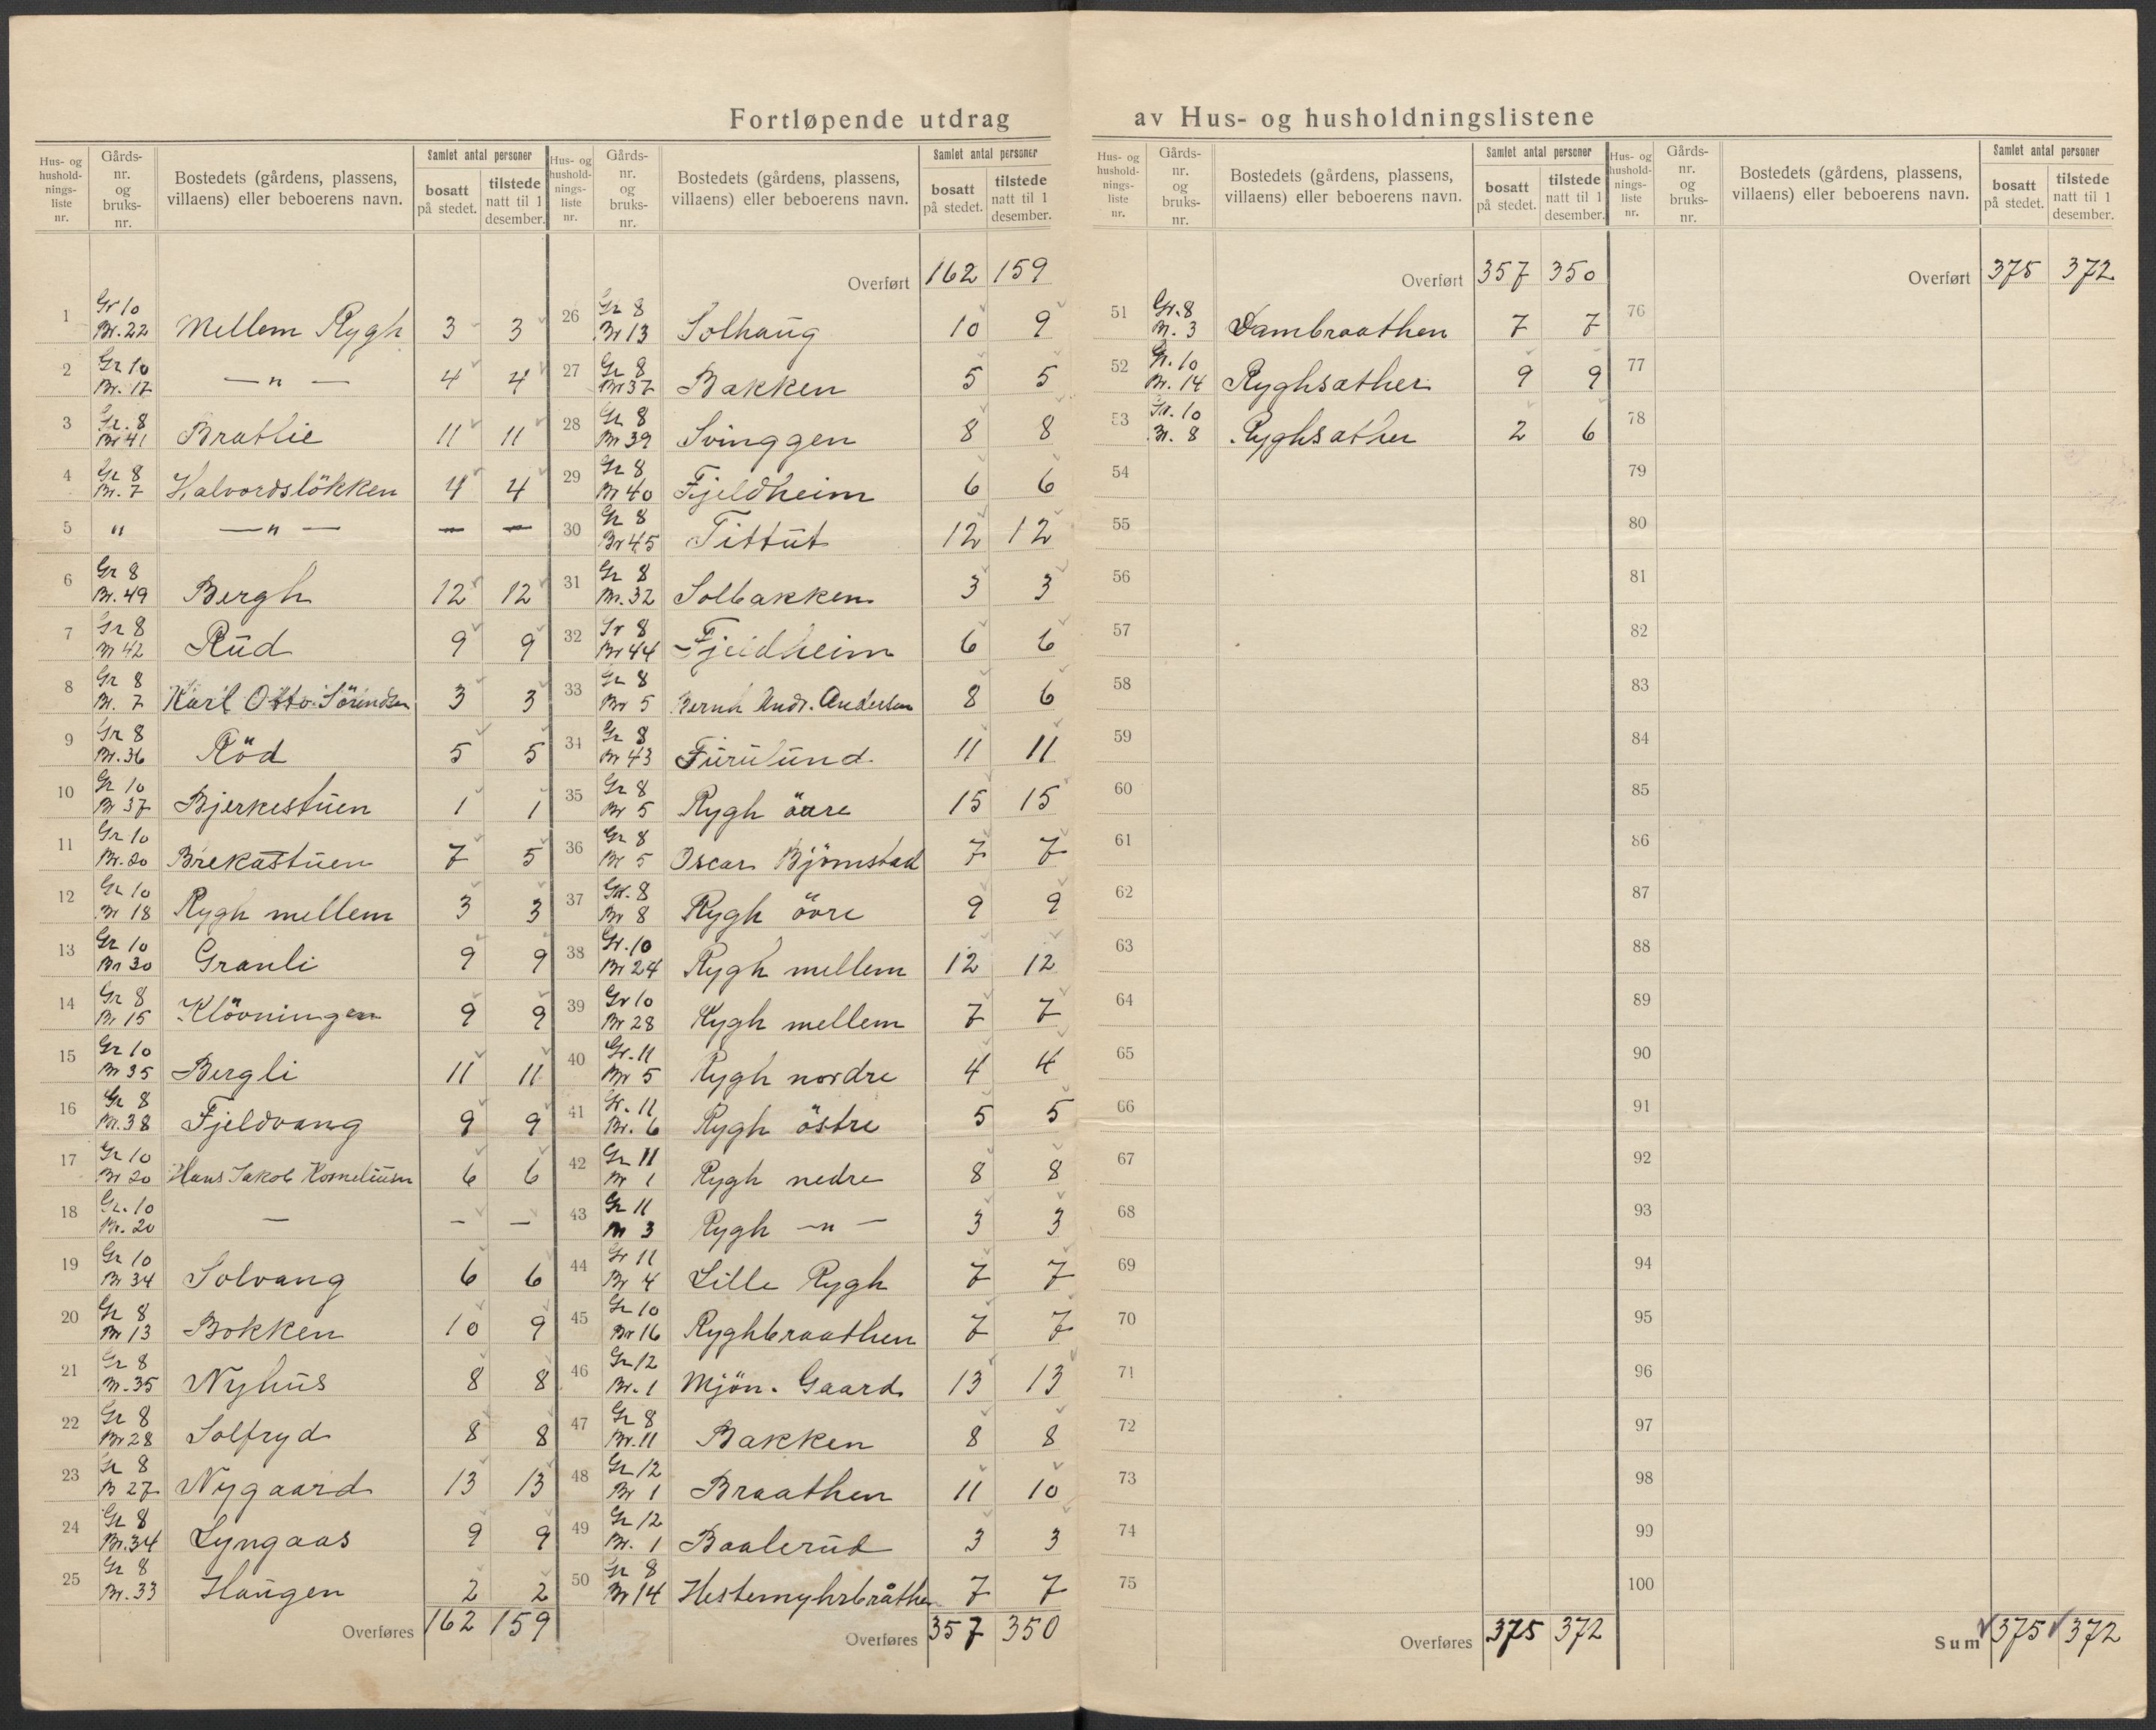 Fortløpende utdrag av Hus- og husholdningslistene
Hus- og hushold-nings-liste nr. Gårds-nr. og bruks-nr. Bostedets (gårdens, plassens, villaens) eller beboerens navn. Samlet antal personer bosatt på stedet. tilstede natt til 1 desember.
1 Gr 10 Br. 22 Mellem Rygh 3 3
2 Gr 10 Br. 17 — " — 4 4
3 Gr. 8 Br 41 Bratlie 11 11
4 Gr 8 Br. 7 Halvordslökken 4 4
5 " — " — — —
6 Gr 8 Br. 49 Bergh 12 12
7 Gr 8 Br 42 Rud 9 9
8 Gr 8 Br. 7 Karl Otto Sörendsen 3 3
9 Gr 8 Br. 36 Röd 5 5
10 Gr 10 Br 37 Bjerkestuen 1 1
11 Gr 10 Br. 20 Brekastuen 7 5
12 Gr 10 Br 18 Rygh mellem 3 3
13 Gr 10 Br 30 Granli 9 9
14 Gr 8 Br 15 Klövningen 9 9
15 Gr 10 Br 35 Bergli 11 11
16 Gr 8 Br. 38 Fjeldvang 9 9
17 Gr 10 Br 20 Hans Jakob Korneliusn 6 6
18 Gr. 10 Br. 20 — — —
19 Gr 10 Br 34 Solvang 6 6
20 Gr 8 Br 13 Bokken 10 9
21 Gr 8 Br. 35 Nyhus 8 8
22 Gr 8 Br 28 Solfryd 8 8
23 Gr 8 B 27 Nygaard 13 13
24 Gr 8 Br. 34 Lyngaas 9 9
25 Gr 8 Br. 33 Haugen 2 2
Overføres 162 159
Hus- og hushold-nings-liste nr. Gårds-nr. og bruks-nr. Bostedets (gårdens, plassens, villaens) eller beboerens navn. Samlet antal personer bosatt på stedet. tilstede natt til 1 desember.
Overført 162 159
26 Gr 8 Br 13 Solhaug 10 9
27 Gr 8 Br 37 Bakken 5 5
28 Gr 8 Br 39 Svinggen 8 8
29 Gr 8 Br 40 Fjeldheim 6 6
30 Gr 8 Br 45 Tittut 12 12
31 Gr 8 Br. 32 Solbakken 3 3
32 Gr 8 Br 44 Fjeldheim 6 6
33 Gr 8 Br 5 Bernh Andr. Andersen 8 6
34 Gr 8 Br 43 Furulund 11 11
35 Gr 8 Br 5 Rygh övre 15 15
36 Gr 8 Br 5 Oscar Björnstad 7 7
37 Gr. 8 Br 8 Rygh övre 9 9
38 Gr. 10 Br 24 Rygh mellem 12 12
39 Gr 10 Br 28 Rygh mellem 7 7
40 Gr. 11 Br 5 Rygh nordre 4 4
41 Gr. 11 Br. 6 Rygh östre 5 5
42 Gr 11 Br 1 Rygh nedre 8 8
43 Gr 11 Br 3 Rygh — " — 3 3
44 Gr 11 Br 4 Lille Rygh 7 7
45 Gr 10 Br 16 Ryghbraathen 7 7
46 Gr 12 Br. 1 Mjön. Gaard 13 13
47 Gr 8 Br. 11 Bakken 8 8
48 Gr 12 Br 1 Braathen 11 10
49 Gr 12 Br. 1 Baalerud 3 3
50 Gr 8 Br 14 Hestemyhrbråthen 7 7
Overføres 357 350
Hus- og hushold-nings-liste nr. Gårds-nr. og bruks-nr. Bostedets (gårdens, plassens, villaens) eller beboerens navn. Samlet antal personer bosatt på stedet. tilstede natt til 1 desember.
Overført 357 350
51 Gr. 8 Br. 3 Dambraathen 7 7
52 Gr. 10 Br. 14 Ryghsæther 9 9
53 Gr. 10 Br. 8 Ryghsæther 2 6
54
55
56
57
58
59
60
61
62
63
64
65
66
67
68
69
70
71
72
73
74
75
Overføres 375 372
Hus- og hushold-nings-liste nr. Gårds-nr. og bruks-nr. Bostedets (gårdens, plassens, villaens) eller beboerens navn. Samlet antal personer bosatt på stedet. tilstede natt til 1 desember.
Overført 375 372
76
77
78
79
80
81
82
83
84
85
86
87
88
89
90
91
92
93
94
95
96
97
98
99
100
Sum 375 372